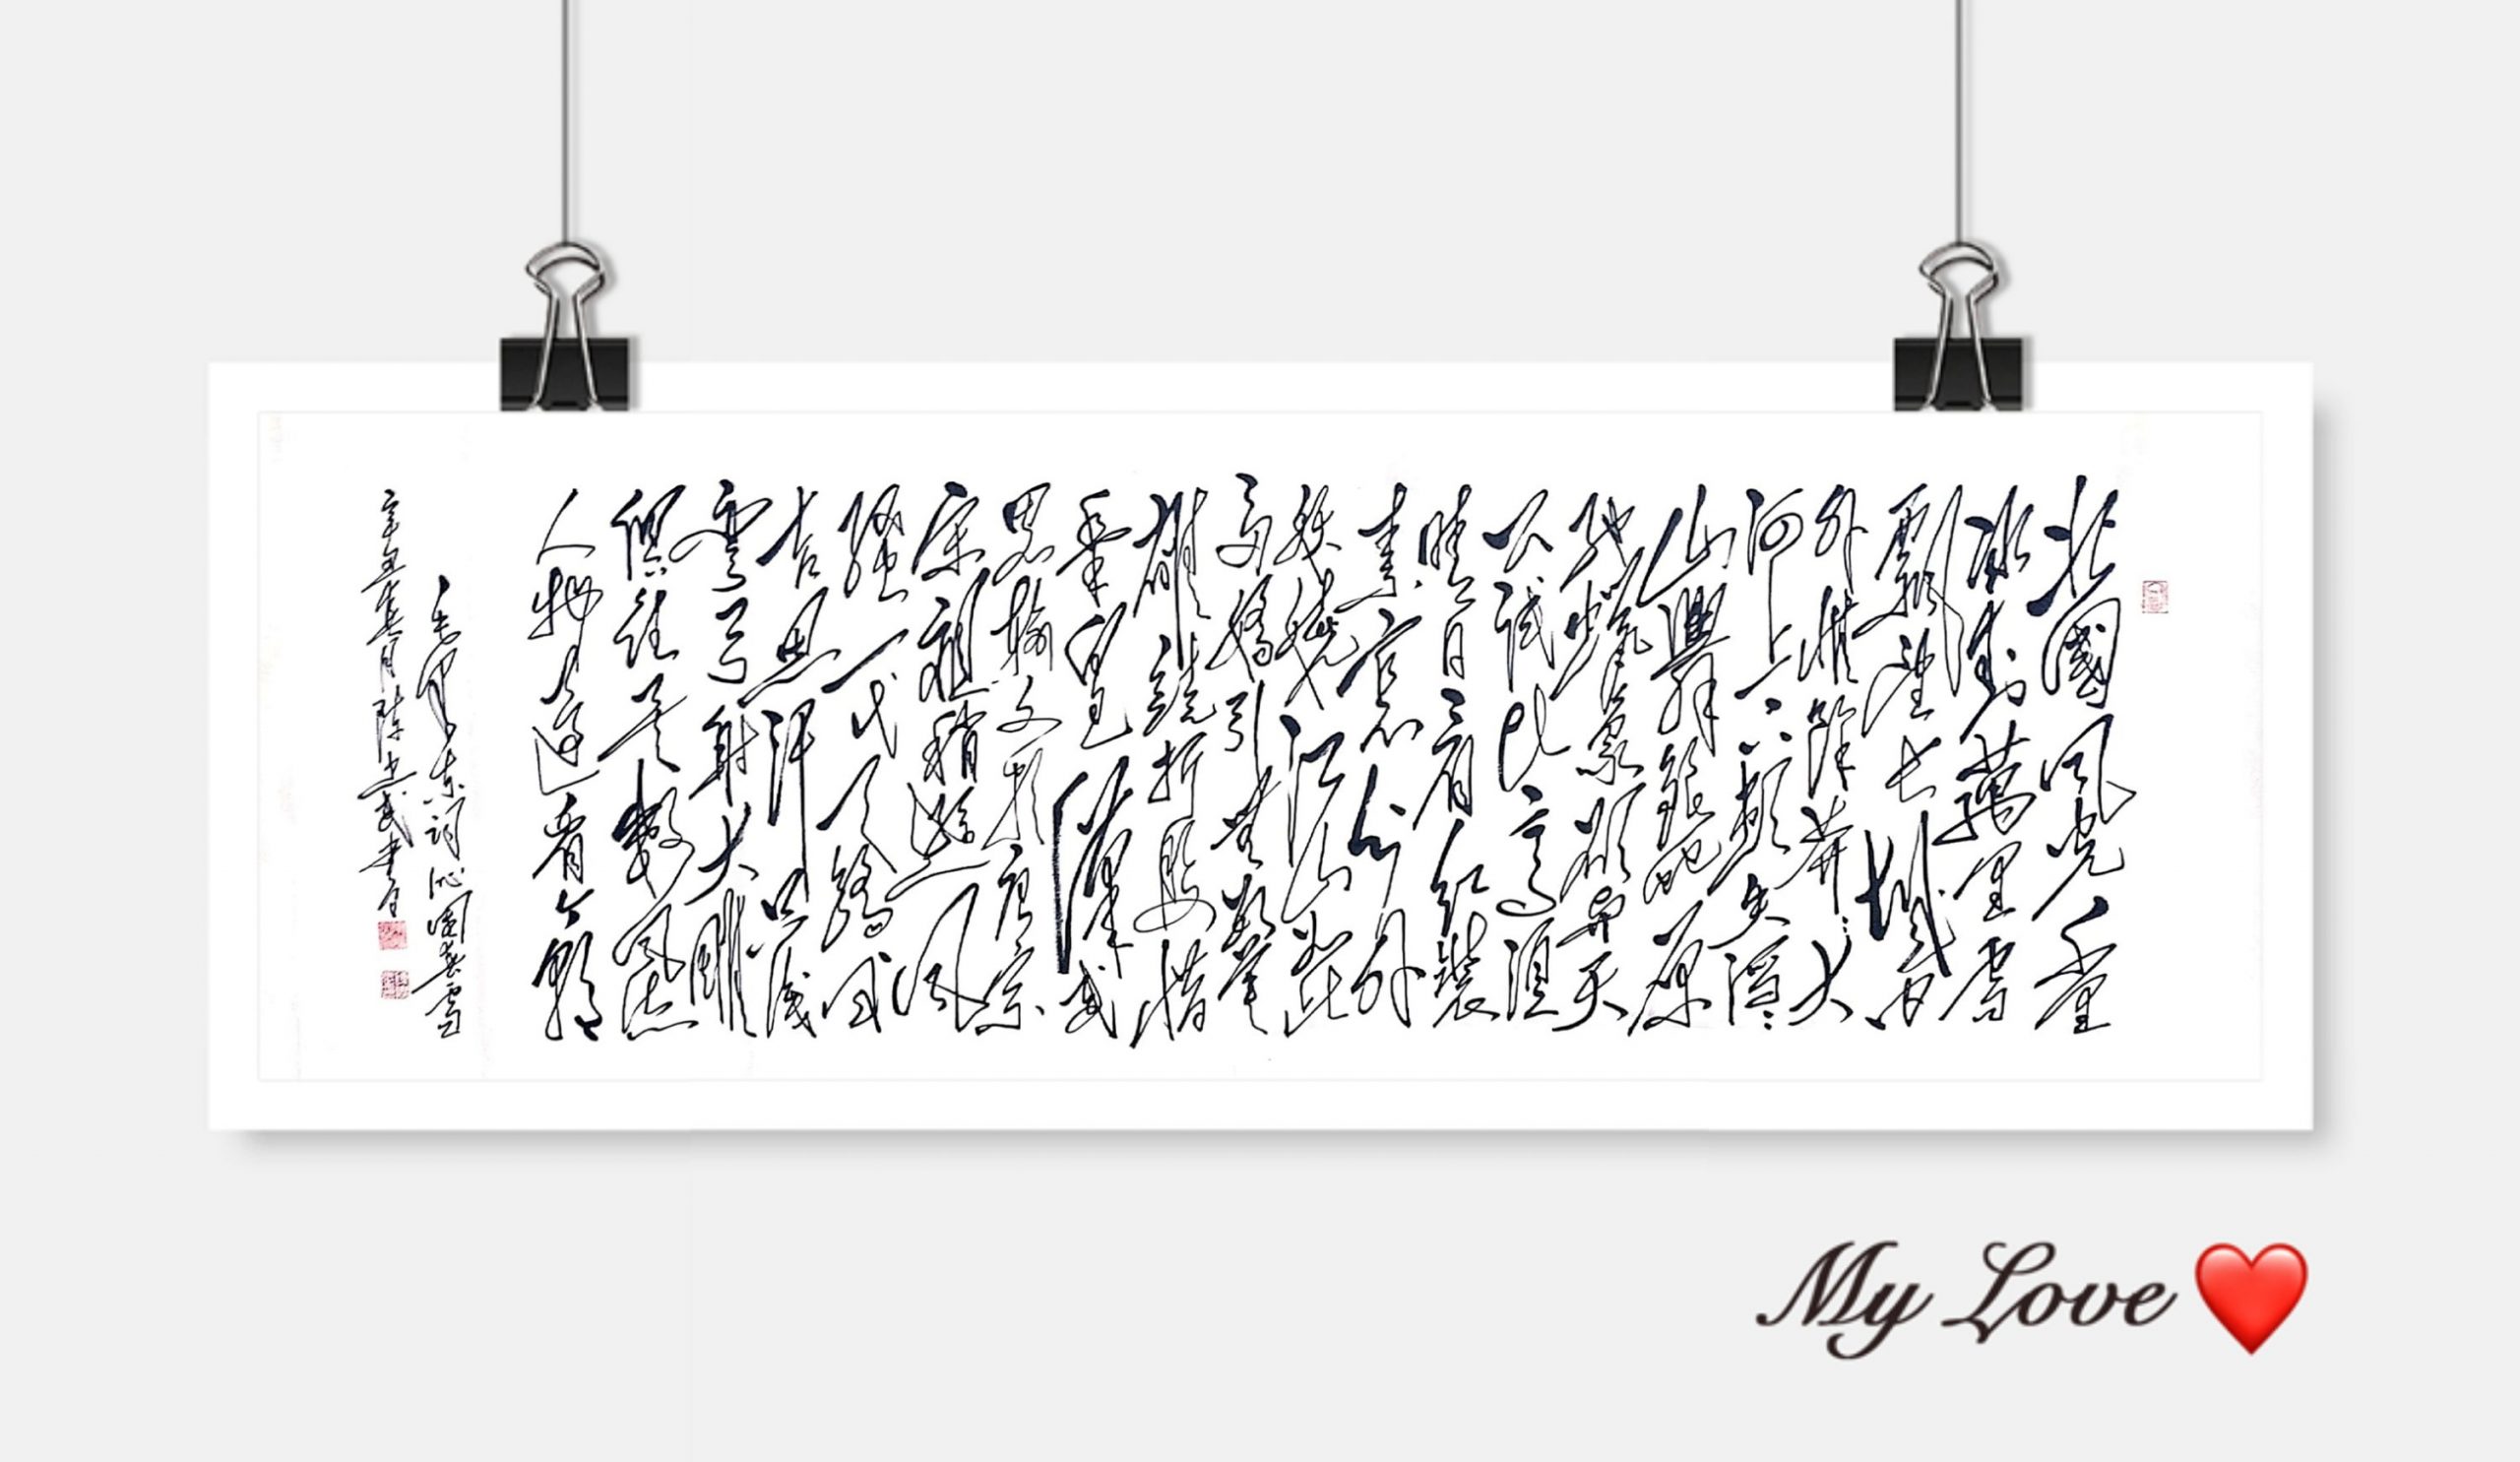 北國風光千里
冰封萬里雪
飄望長城內
外惟餘莽莽大
河上下頓失滔滔
山舞銀蛇原
馳蠟象欲與天
公試比高須
晴日看紅裝
素裹分外
妖嬈江山如此
多嬌引無數英
雄競折腰惜
秦皇漢武
略輸文采唐宗
宋祖稍遜風
騷一代天驕成
吉思汗只識
彎弓射大雕
俱往矣數風流
人物還看今朝
毛澤東詞沁園春雪
辛丑月陳武書
My Love ❤️